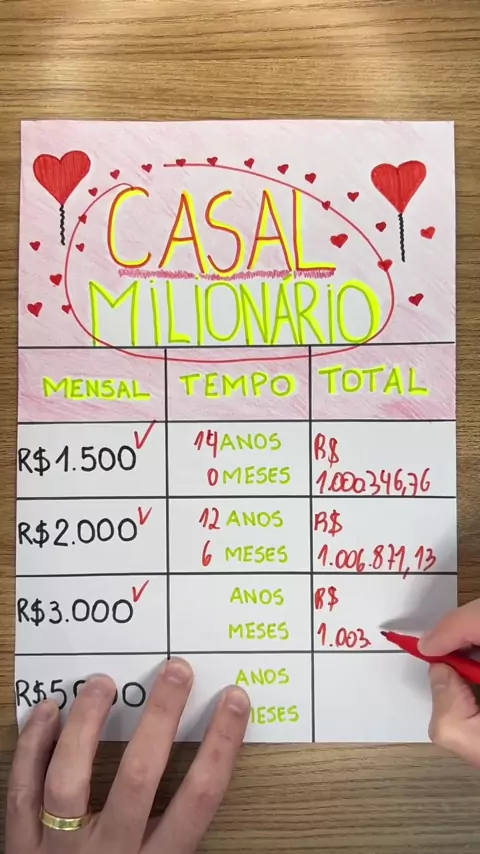 CASAL
MILIONÁRIO
MENSAL TEMPO TOTAL
R$1.500 14 ANOS R$
0 MESES 1.000.346,76
R$2.000 12 ANOS R$
6 MESES 1.006.871,13
R$3.000 ANOS R$
MESES 1.003.
ANOS